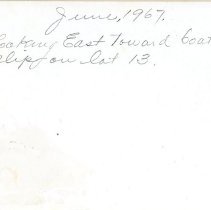 June, 1967.
Looking East Toward Boat
Slip on Lot 13.